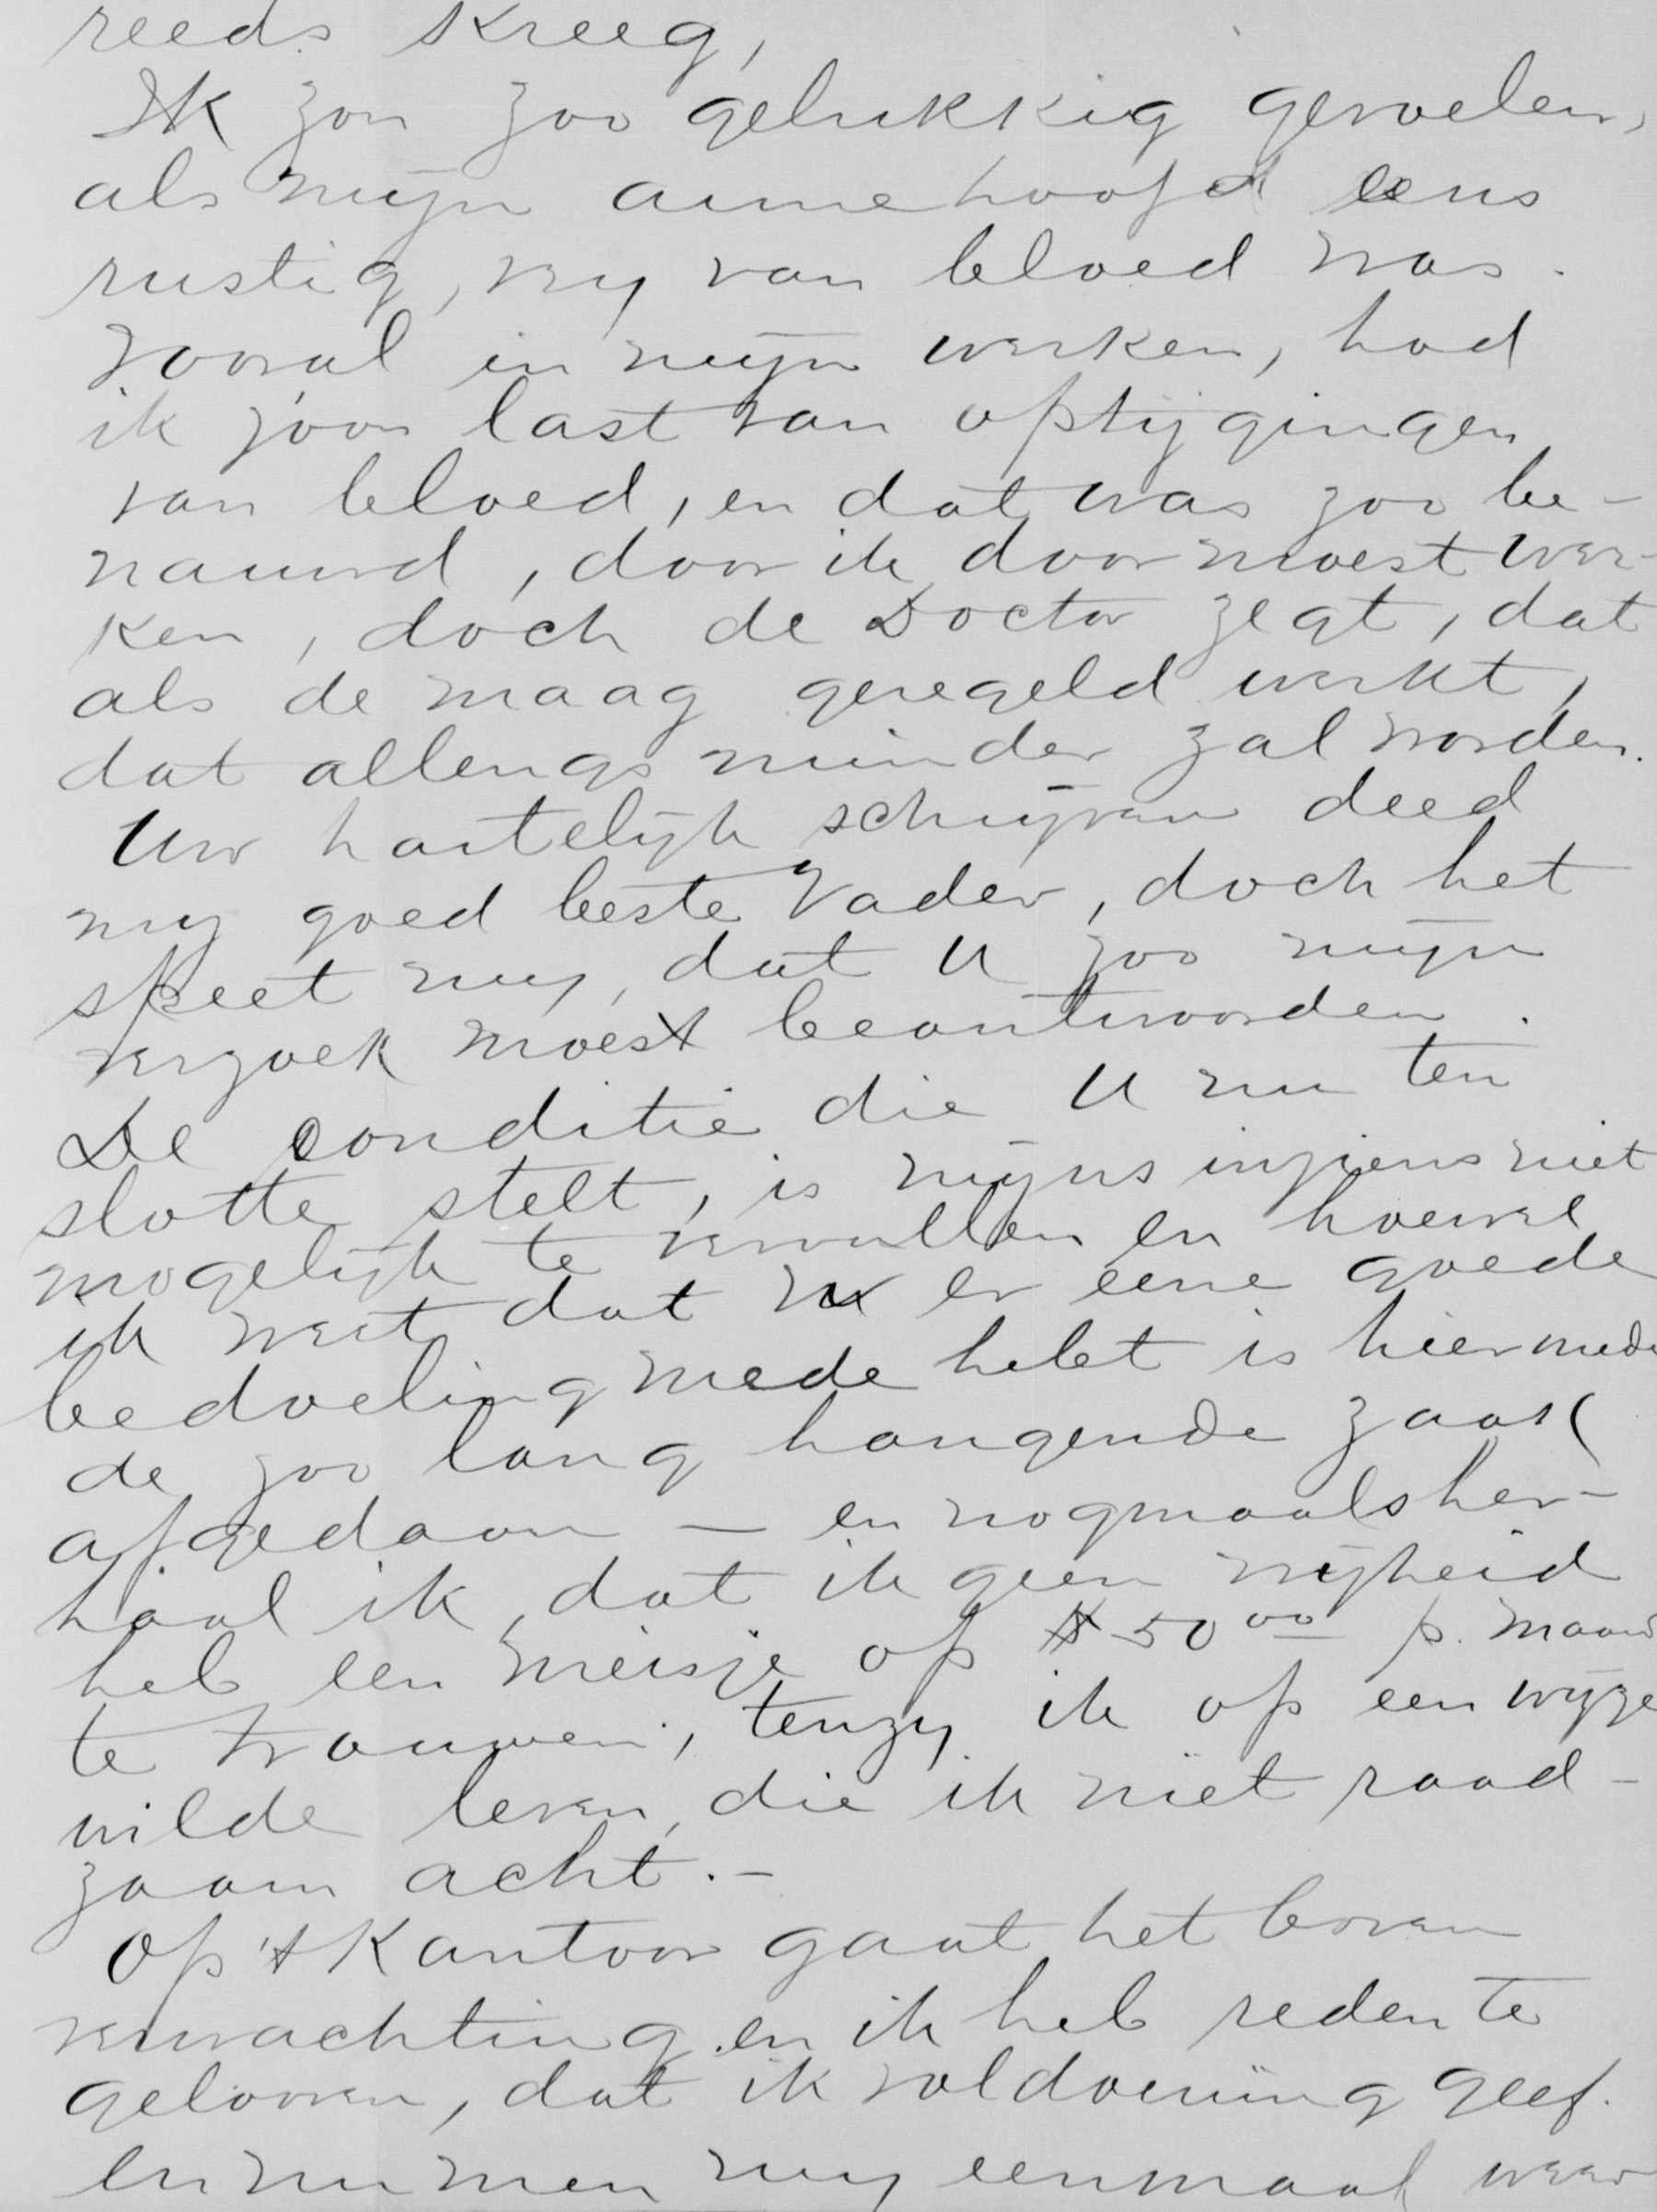 reeds kreeg,
Ik zou zoo gelukkig gevoelen,
als mijn arme hoofd eens
rustig, vry van bloed was.
Vooral in mijn werken, had
ik zóó'n last van optijgingen
van bloed, en dat was zoo be-
nauwd, daar ik door moest wer-
ken, doch de Doctor zegt, dat
als de maag geregeld werkt,
dat allengs minder zal worden.
Uw hartelijk schrijven deed
my goed beste Vader, doch het
speet my, dat U zoo mijn
verzoek moest beantwoorden.
De conditie die U nu ten
slotte stelt, is mijns inziens niet
mogelijk te vervullen en hoewel
ik weet dat U er eene goede
bedoeling mede hebt is hiermede
de zoo lang hangende zaak
afgedaan — en nogmaals her-
haal ik, dat ik geen vrijheid
heb een meisje op $ 50 00 p. maand
te trouwen, tenzy ik op een wijze
wilde leven, die ik niet raad-
zaam acht.-
Op 't Kantoor gaat het boven
verwachting en ik heb reden te
gelooven, dat ik voldoening geef.
en nu men my eenmaal weer